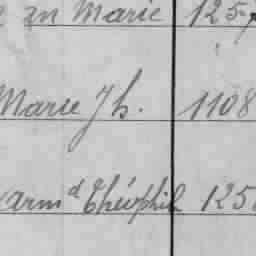 en Marie 125
Marie Jh. 1108
arm^d Théophil 125